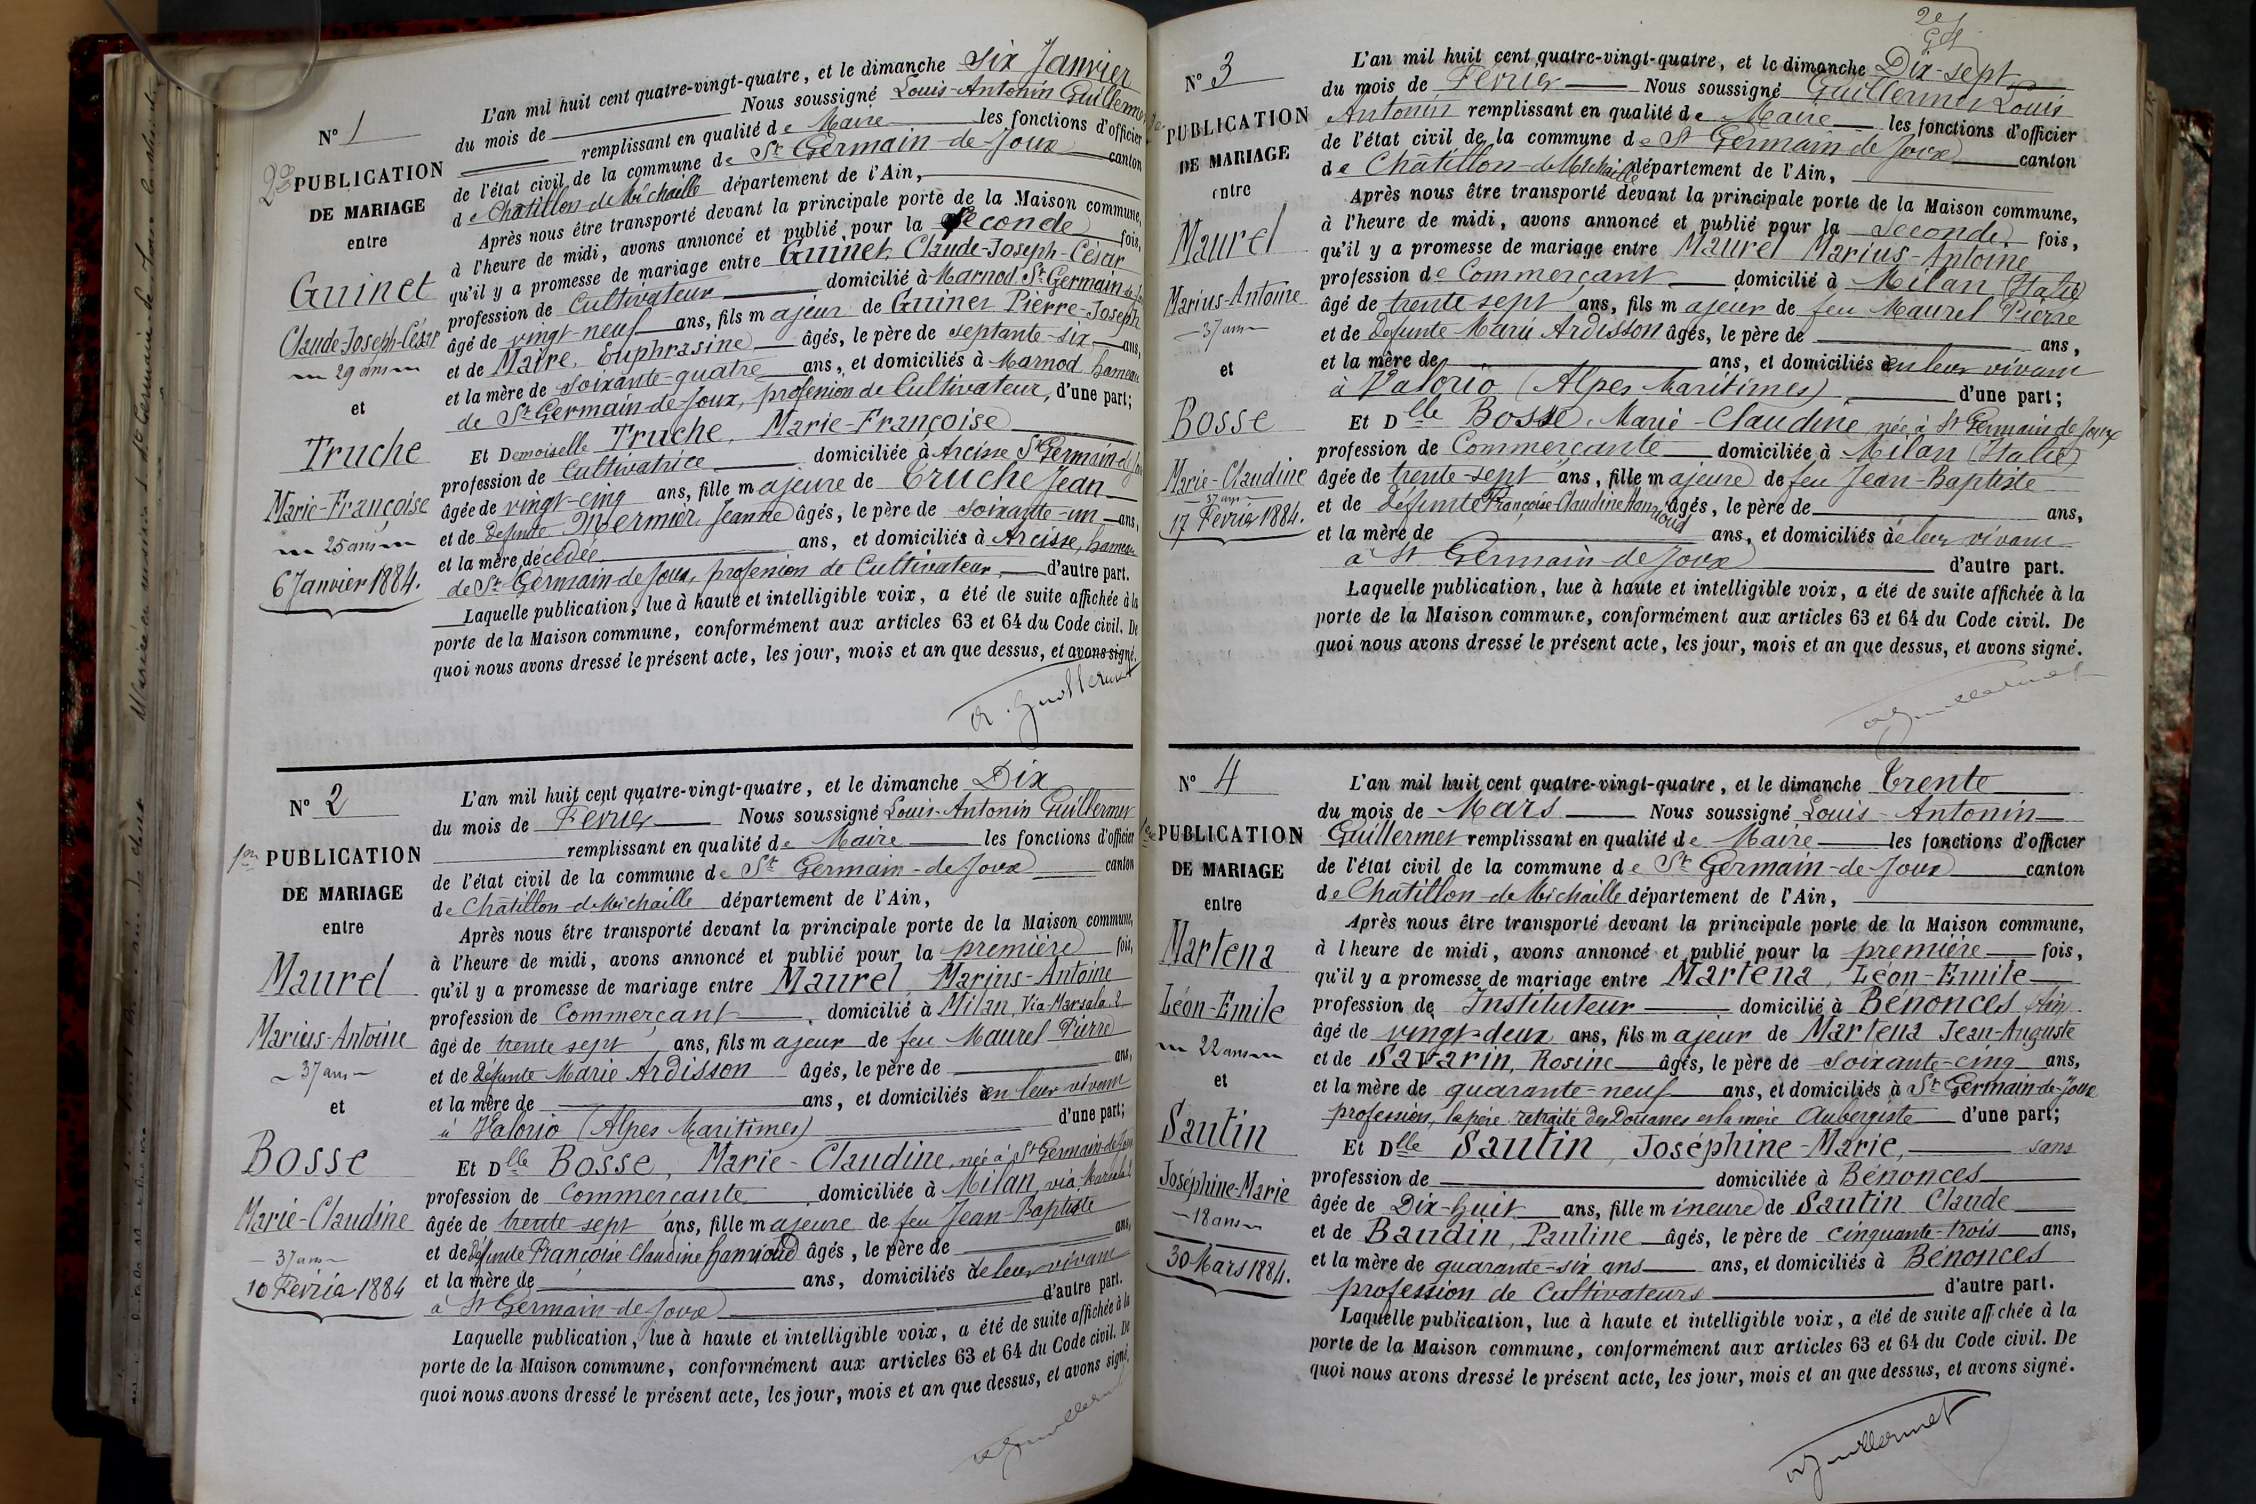 N° 1
2e PUBLICATION
DE MARIAGE
entre
Guinet
Claude-Joseph-César
29 ans
et
Truche
Marie-Françoise
25 ans
6 Janvier 1884.
L'an mil huit cent quatre-vingt-quatre, et le dimanche six Janvier
du mois de Nous soussigné Louis-Antonin Guillermet
remplissant en qualité de Maire les fonctions d'officier
de l'état civil de la commune de St Germain-de-Joux canton
de Châtillon de Michaille département de l'Ain,
Après nous être transporté devant la principale porte de la Maison commune,
à l'heure de midi, avons annoncé et publié pour la seconde fois,
qu'il y a promesse de mariage entre Guinet, Claude-Joseph-César
profession de Cultivateur domicilié à Marnod St Germain de Joux
âgé de vingt-neuf ans, fils majeur de Guinet Pierre-Joseph
et de Maire, Euphrasine âgés, le père de septante-six ans,
et la mère de soixante-quatre ans, et domiciliés à Marnod hameau
de St Germain-de-Joux, profession de Cultivateur, d'une part;
Et Demoiselle Truche, Marie-Françoise
profession de Cultivatrice domiciliée à Arcisse St Germain-de-Joux
âgée de vingt-cinq ans, fille majeure de Truche Jean
et de défunte Mermier, Jeanne âgés, le père de soixante-un ans,
et la mère décédée ans, et domiciliés à Arcisse, hameau
de St Germain de Joux, profession de Cultivateur, d'autre part.
Laquelle publication, lue à haute et intelligible voix, a été de suite affichée à la
porte de la Maison commune, conformément aux articles 63 et 64 du Code civil. De
quoi nous avons dressé le présent acte, les jour, mois et an que dessus, et avons signé.
A. Guillermet
N° 2
1re PUBLICATION
DE MARIAGE
entre
Maurel
Marius-Antoine
37 ans
et
Bosse
Marie-Claudine
37 ans
10 Février 1884
L'an mil huit cent quatre-vingt-quatre, et le dimanche Dix
du mois de Février Nous soussigné Louis-Antonin Guillermet
remplissant en qualité de Maire les fonctions d'officier
de l'état civil de la commune de St Germain-de-Joux canton
de Châtillon-de-Michaille département de l'Ain,
Après nous être transporté devant la principale porte de la Maison commune,
à l'heure de midi, avons annoncé et publié pour la première fois,
qu'il y a promesse de mariage entre Maurel, Marius-Antoine
profession de Commerçant domicilié à Milan, Via Marsala 2
âgé de trente sept ans, fils majeur de feu Maurel Pierre
et de défunte Marie Ardisson âgés, le père de ans,
et la mère de ans, et domiciliés en leur vivant
à Valorio (Alpes Maritimes) d'une part;
Et Dlle Bosse, Marie-Claudine, née à St Germain-de-Joux
profession de Commerçante domiciliée à Milan, via Marsala 2
âgée de trente sept ans, fille majeure de feu Jean-Baptiste
et de défunte Françoise Claudine Hanrioud âgés, le père de ans,
et la mère de ans, domiciliés de leur vivant
à St Germain-de-Joux d'autre part.
Laquelle publication, lue à haute et intelligible voix, a été de suite affichée à la
porte de la Maison commune, conformément aux articles 63 et 64 du Code civil. De
quoi nous avons dressé le présent acte, les jour, mois et an que dessus, et avons signé.
A Guillermet
N° 3
PUBLICATION
DE MARIAGE
entre
Maurel
Marius-Antoine
37 ans
et
Bosse
Marie-Claudine
37 ans
17 Février 1884.
L'an mil huit cent quatre-vingt-quatre, et le dimanche Dix-sept
du mois de Février Nous soussigné Guillermet Louis
Antonin remplissant en qualité de Maire les fonctions d'officier
de l'état civil de la commune de St Germain de Joux canton
de Châtillon-de-Michaille département de l'Ain,
Après nous être transporté devant la principale porte de la Maison commune,
à l'heure de midi, avons annoncé et publié pour la seconde fois,
qu'il y a promesse de mariage entre Maurel Marius-Antoine
profession de Commerçant domicilié à Milan (Italie)
âgé de trente sept ans, fils majeur de feu Maurel Pierre
et de défunte Marie Ardisson âgés, le père de ans,
et la mère de ans, et domiciliés en leur vivant
à Valorio (Alpes Maritimes) d'une part;
Et Dlle Bosse, Marie-Claudine, née à St Germain de Joux
profession de Commerçante domiciliée à Milan (Italie)
âgée de trente-sept ans, fille majeure de feu Jean-Baptiste
et de défunte Françoise-Claudine Hanrioud âgés, le père de ans,
et la mère de ans, et domiciliés de leur vivant
à St Germain-de-Joux d'autre part.
Laquelle publication, lue à haute et intelligible voix, a été de suite affichée à la
porte de la Maison commune, conformément aux articles 63 et 64 du Code civil. De
quoi nous avons dressé le présent acte, les jour, mois et an que dessus, et avons signé.
A Guillermet
N° 4
1re PUBLICATION
DE MARIAGE
entre
Martena
Léon-Emile
22 ans
et
Sautin
Joséphine-Marie
18 ans
30 Mars 1884.
L'an mil huit cent quatre-vingt-quatre, et le dimanche Trente
du mois de Mars Nous soussigné Louis-Antonin
Guillermet remplissant en qualité de Maire les fonctions d'officier
de l'état civil de la commune de St Germain-de-Joux canton
de Châtillon-de-Michaille département de l'Ain,
Après nous être transporté devant la principale porte de la Maison commune,
à l'heure de midi, avons annoncé et publié pour la première fois,
qu'il y a promesse de mariage entre Martena, Léon-Emile
profession de Instituteur domicilié à Bénonces Ain
âgé de vingt-deux ans, fils majeur de Martena Jean-Auguste
et de Savarin, Rosine âgés, le père de soixante-cinq ans,
et la mère de quarante-neuf ans, et domiciliés à St Germain-de-Joux
profession, le père retraité des Douanes et la mère Aubergiste d'une part;
Et Dlle Sautin, Joséphine-Marie, sans
profession de domiciliée à Bénonces
âgée de Dix-huit ans, fille mineure de Sautin Claude
et de Baudin, Pauline âgés, le père de cinquante-trois ans,
et la mère de quarante-six ans ans, et domiciliés à Bénonces
profession de Cultivateurs d'autre part.
Laquelle publication, lue à haute et intelligible voix, a été de suite affichée à la
porte de la Maison commune, conformément aux articles 63 et 64 du Code civil. De
quoi nous avons dressé le présent acte, les jour, mois et an que dessus, et avons signé.
A Guillermet